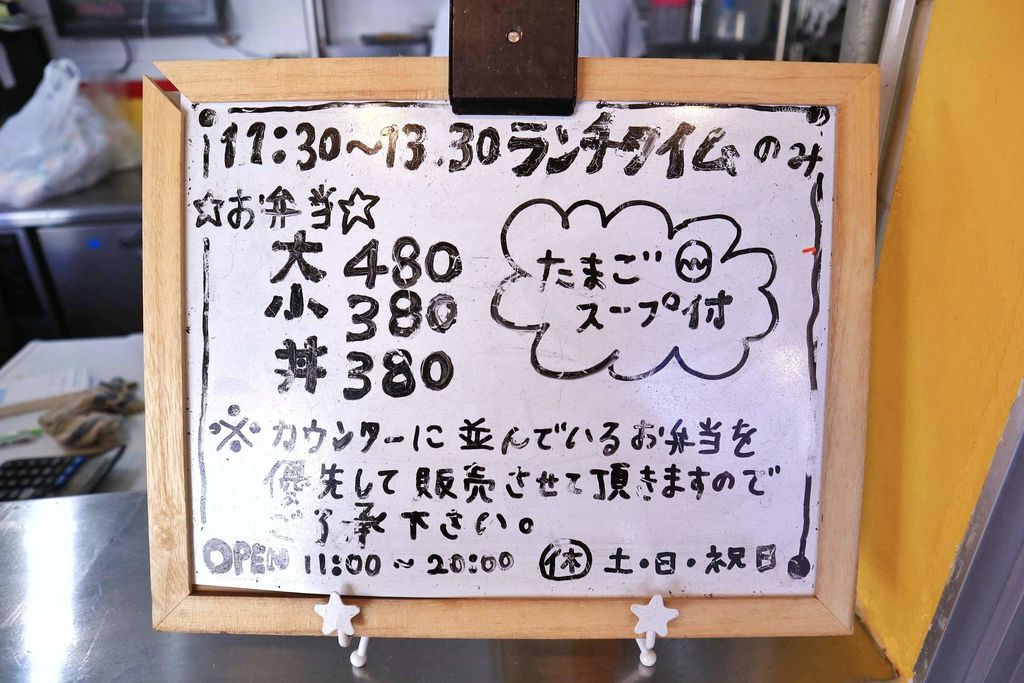 11:30〜13.30ランチタイムのみ
☆お弁当☆
大 480
小 380
丼 380
たまご
スープ付
※カウンターに並んでいるお弁当を
優先して販売させて頂きますので
ご了承下さい。
OPEN 11:00〜20:00 ㊡ 土・日・祝日